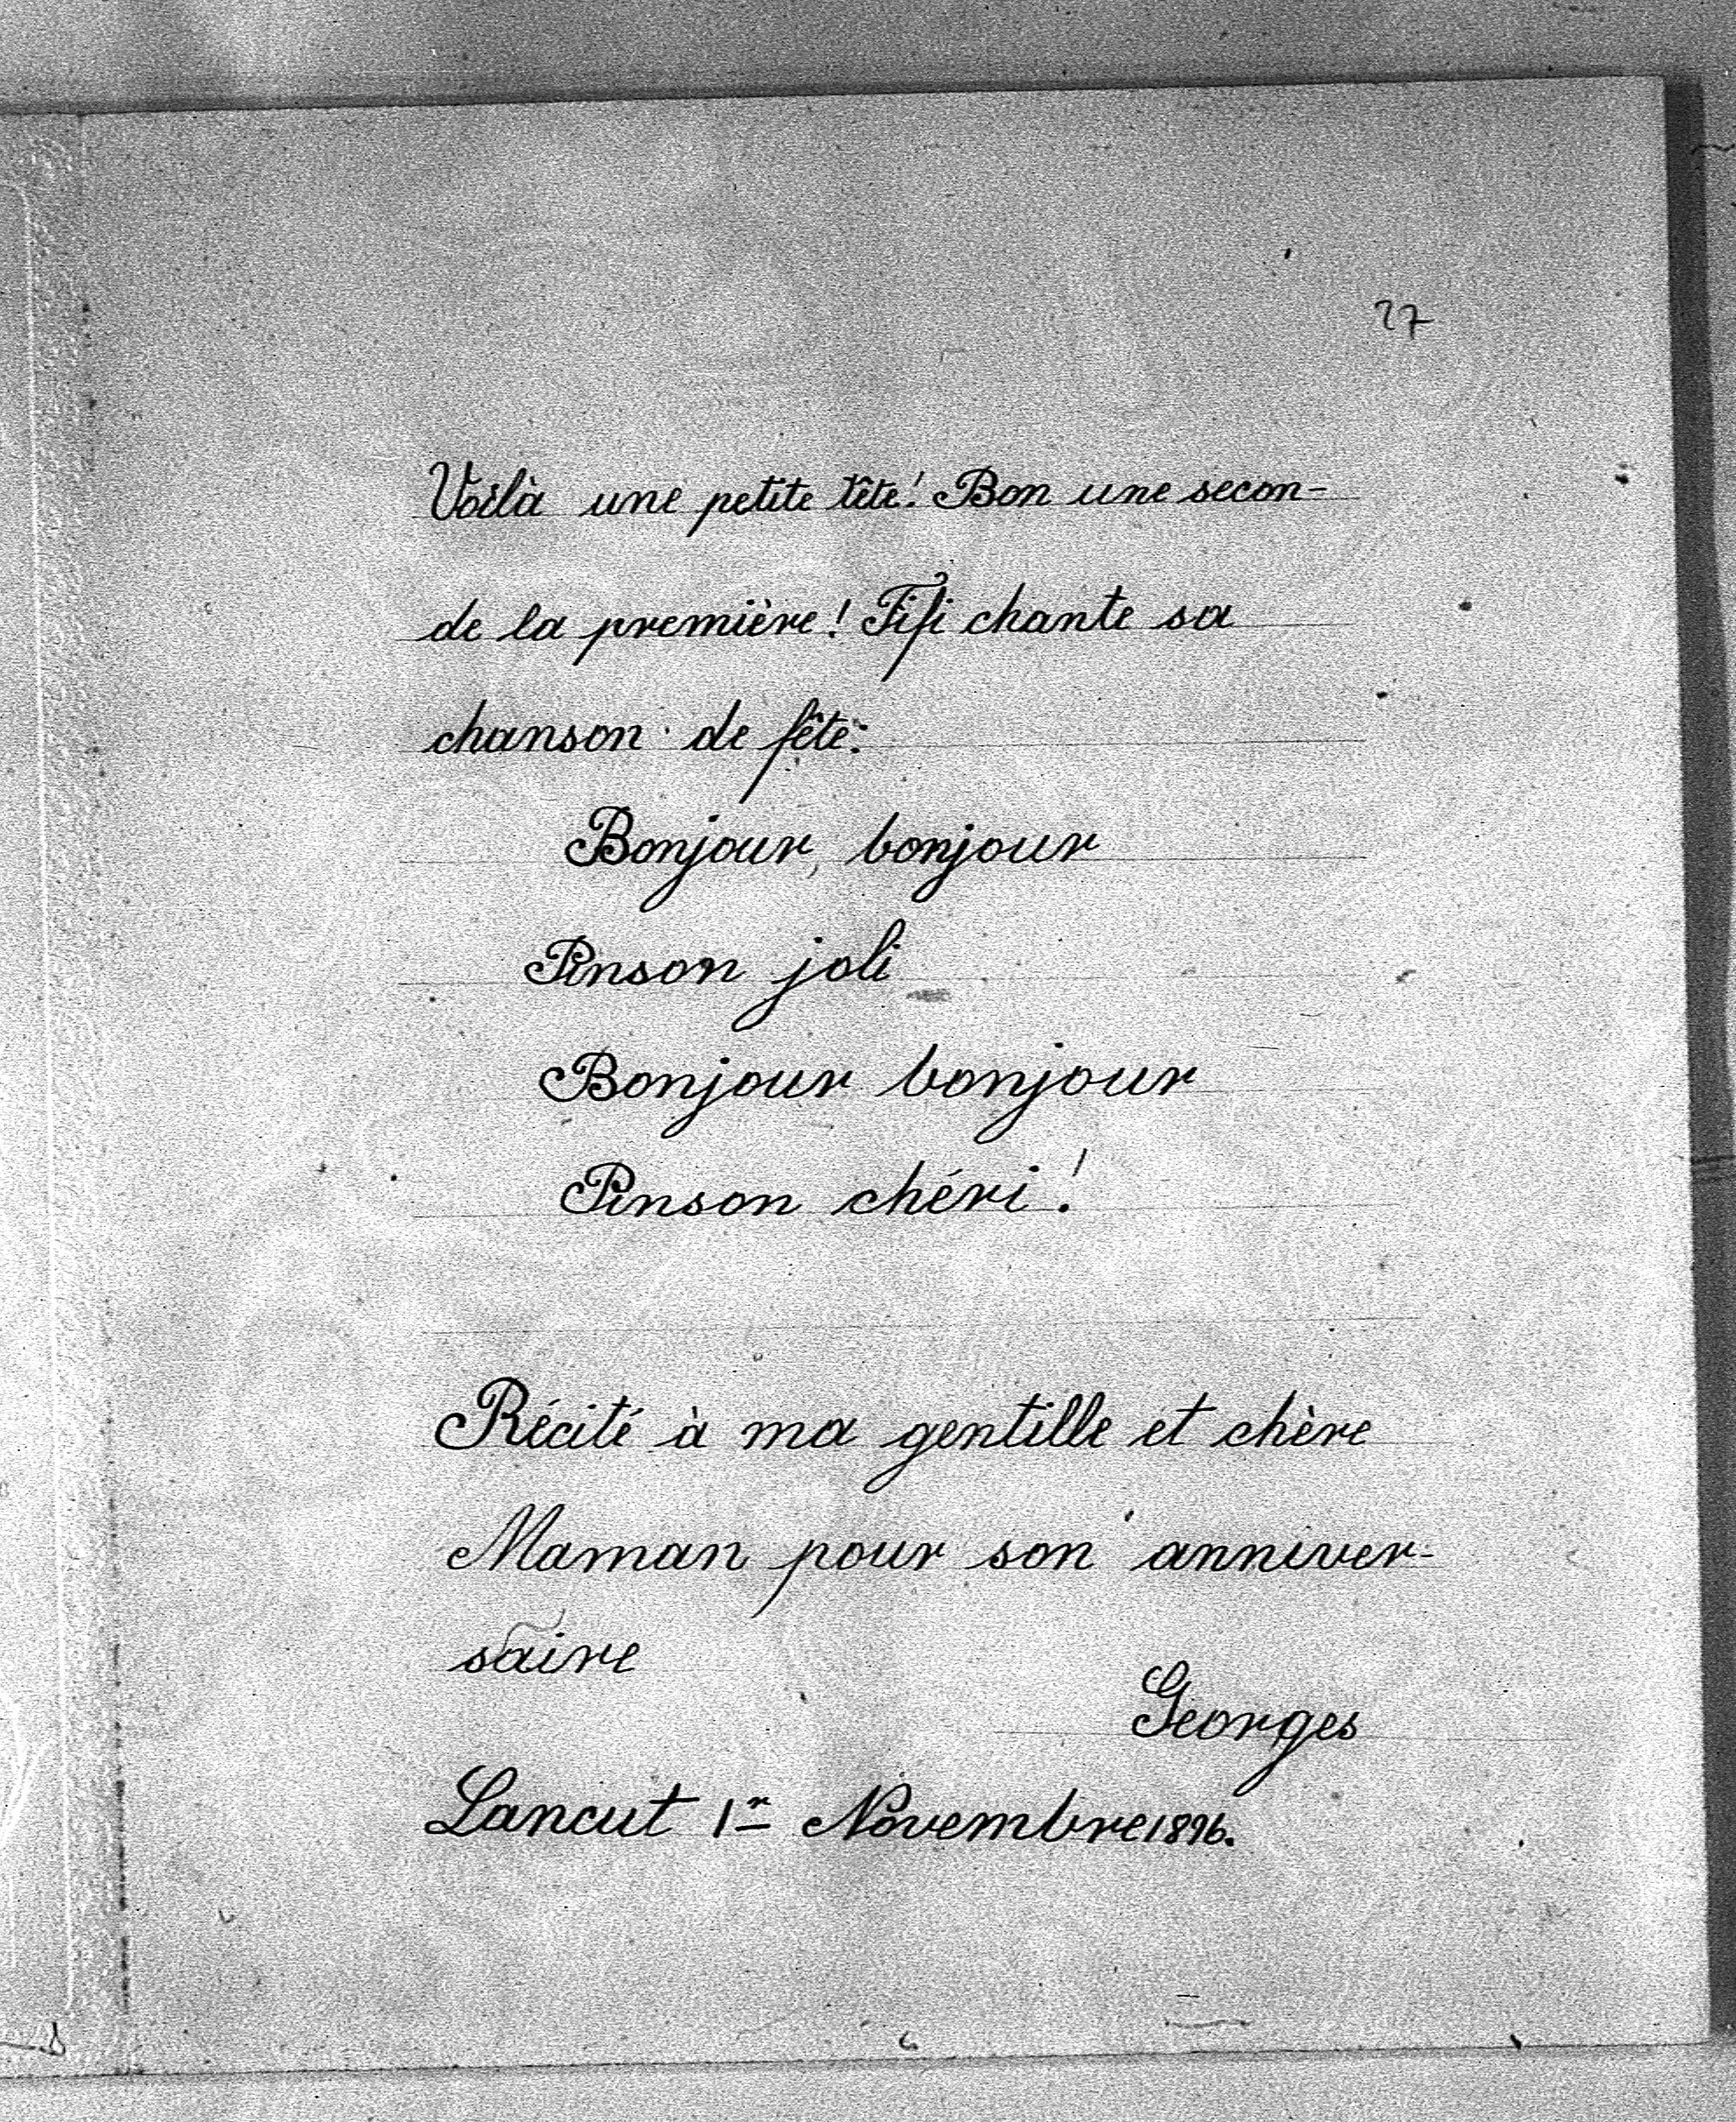 27
Voilà une petite tête! Bon une secon-
de la première! Fifi chante sa
chanson de fête:
Bonjour, bonjour
Pinson joli
Bonjour bonjour
Pinson chéri!
Récité à ma gentille et chère
Maman pour son anniver-
saire
Georges
Lancut 1r Novembre 1896.